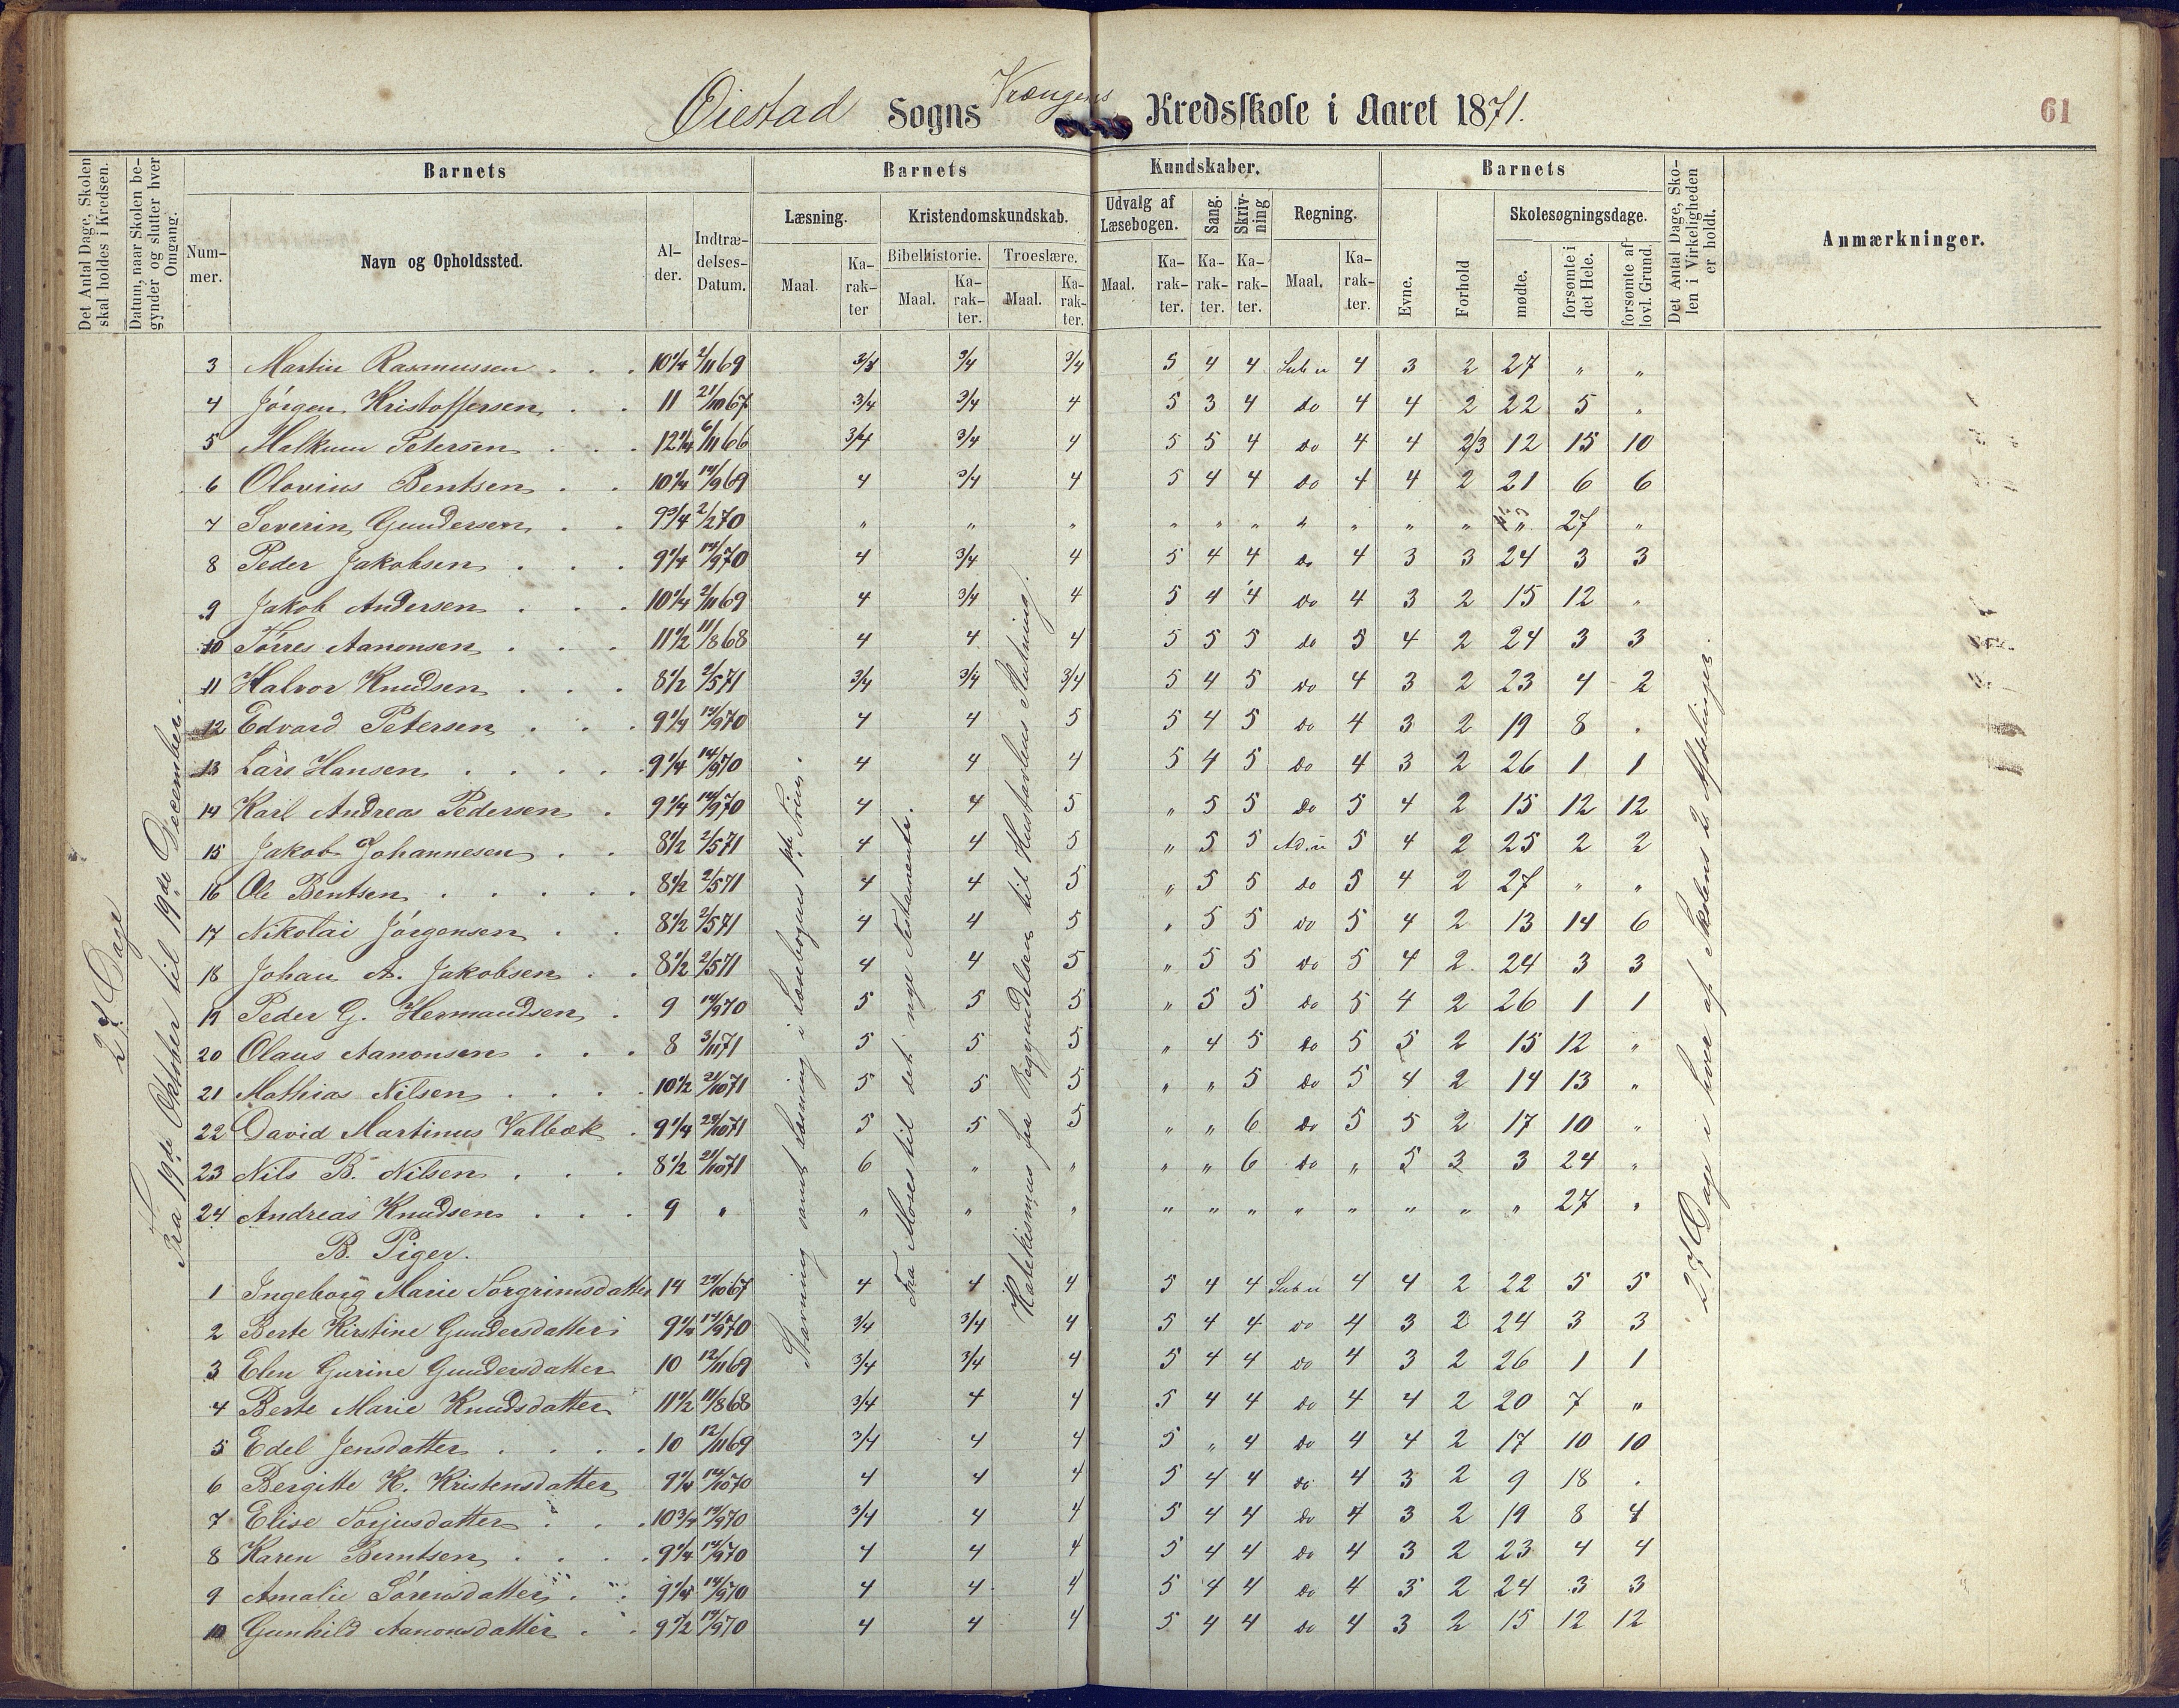 Øiestad Sogns Vrængens Kredsskole i Aaret 1871.
61
Det Antal Dage, Skolen skal holdes i Kredsen.
Datum, naar Skolen begynder og slutter hver Omgang.
Barnets
Nummer.
Navn og Opholdssted.
Alder.
Indtrædelses-Datum.
Barnets Kundskaber.
Læsning.
Maal.
Karakter
Kristendomskundskab.
Bibelhistorie.
Maal.
Karakter.
Troeslære.
Maal.
Karakter.
Udvalg af Læsebogen.
Maal.
Karakter.
Sang.
Karakter.
Skrivning
Karakter.
Regning.
Maal.
Karakter.
Barnets
Evne.
Forhold
Skolesøgningsdage.
mødte.
forsømte i det Hele.
forsømte af lovl. Grund.
Det Antal Dage, Skolen i Virkeligheden er holdt.
Anmærkninger.
27 Dage
Fra 19de Oktober til 19de December.
Stavning samt Læsning i Læsebogens 1ste Trin.
Fra Moses til det nye Testamente.
Katekismus fra Begyndelsen til Hustavlens Slutning.
27 Dage i hver af Skolens 2 Afdelinger.
3 Martin Rasmussen 10 1/4 2/11 69 3/4 3/4 5 4 4 Sub u 4 3 2 27 " "
4 Jórgen Kristoffersen 11 21/10 67 3/4 3/4 4 5 3 4 do 4 4 2 22 5 "
5 Malkum Petersen 12 1/4 6/11 66 3/4 3/4 4 5 5 4 do 4 4 2/3 12 15 10
6 Olovius Bentsen 10 1/4 14/9 69 4 3/4 4 5 4 4 do 4 4 2 21 6 6
7 Severin Gundersen 9 3/4 2/2 70 " " " " " " " " " " " 27 "
8 Peder Jakobsen 9 1/4 14/9 70 4 3/4 4 5 4 4 do 4 3 3 24 3 3
9 Jakob Andersen 10 1/4 2/11 69 4 3/4 4 5 4 4 do 4 3 2 15 12 "
10 Tórres Aanonsen 11 1/2 11/8 68 4 4 4 5 5 5 do 5 4 2 24 3 3
11 Halvor Knudsen 8 1/2 2/5 71 3/4 3/4 3/4 5 4 5 do 4 3 2 23 4 2
12 Edvard Petersen 9 1/4 14/9 70 4 4 5 5 4 5 do 4 3 2 19 8 "
13 Lars Hansen 9 1/4 14/9 70 4 4 4 5 4 5 do 4 3 2 26 1 1
14 Karl Andreas Pedersen 9 1/4 14/9 70 4 4 5 " 5 5 do 5 4 2 15 12 12
15 Jakob Johannesen 8 1/2 2/5 71 4 4 5 " 5 5 Ad. u 5 4 2 25 2 2
16 Ole Bentsen 8 1/2 2/5 71 4 4 5 " 5 5 do 5 4 2 27 " "
17 Nikolai Jórgensen 8 1/2 2/5 71 4 4 5 " 5 5 do 5 4 2 13 14 6
18 Johan A. Jakobsen 8 1/2 2/5 71 4 4 5 " 5 5 do 5 4 2 24 3 3
19 Peder G. Hermandsen 9 14/9 70 5 5 5 " 5 5 do 5 4 2 26 1 1
20 Olaus Aanonsen 8 3/11 71 5 5 5 " 4 5 do 5 5 2 15 12 "
21 Mathias Nilsen 10 1/2 21/10 71 5 5 5 " " 5 do 5 4 2 14 13 "
22 David Martinus Valbæk 9 1/4 10 71 5 5 5 " " 6 do 5 5 2 17 10 "
23 Nils B. Nilsen 8 1/2 21/10 71 6 " " " " 6 do " 5 3 3 24 "
24 Andreas Knudsen 9 " " " " " " " " " " " " 27 "
B. Piger.
1 Ingeborg Marie Torgrimsdatter 14 10 67 4 4 4 5 4 4 Sub u 4 4 2 22 5 5
2 Berte Kirstine Gundersdatter 9 1/4 14/9 70 3/4 3/4 4 5 4 4 do 4 3 2 24 3 3
3 Elen Gurine Gundersdatter 10 12/11 69 3/4 3/4 4 5 4 4 do 4 3 2 26 1 1
4 Berte Marie Knudsdatter 11 1/2 11/8 68 3/4 4 4 5 4 4 do 4 4 2 20 7 "
5 Edel Jensdatter 10 12/11 69 3/4 4 4 5 " 4 do 4 4 2 17 10 10
6 Bergitte K. Kristensdatter 9 1/4 14/10 70 4 4 4 5 4 4 do 4 3 2 9 18 "
7 Elise Torjusdatter 10 3/4 14/9 70 3/4 4 4 5 4 4 do 4 3 2 19 8 4
8 Karen Berntsen 9 1/4 14/9 70 4 4 4 5 4 4 do 4 3 2 23 4 4
9 Amalie Sórensdatter 9 1/4 14/9 70 4 4 4 5 4 4 do 4 3 2 24 3 3
10 Gunhild Aanonsdatter 9 1/2 14/9 70 4 4 4 5 4 4 do 4 3 2 15 12 12